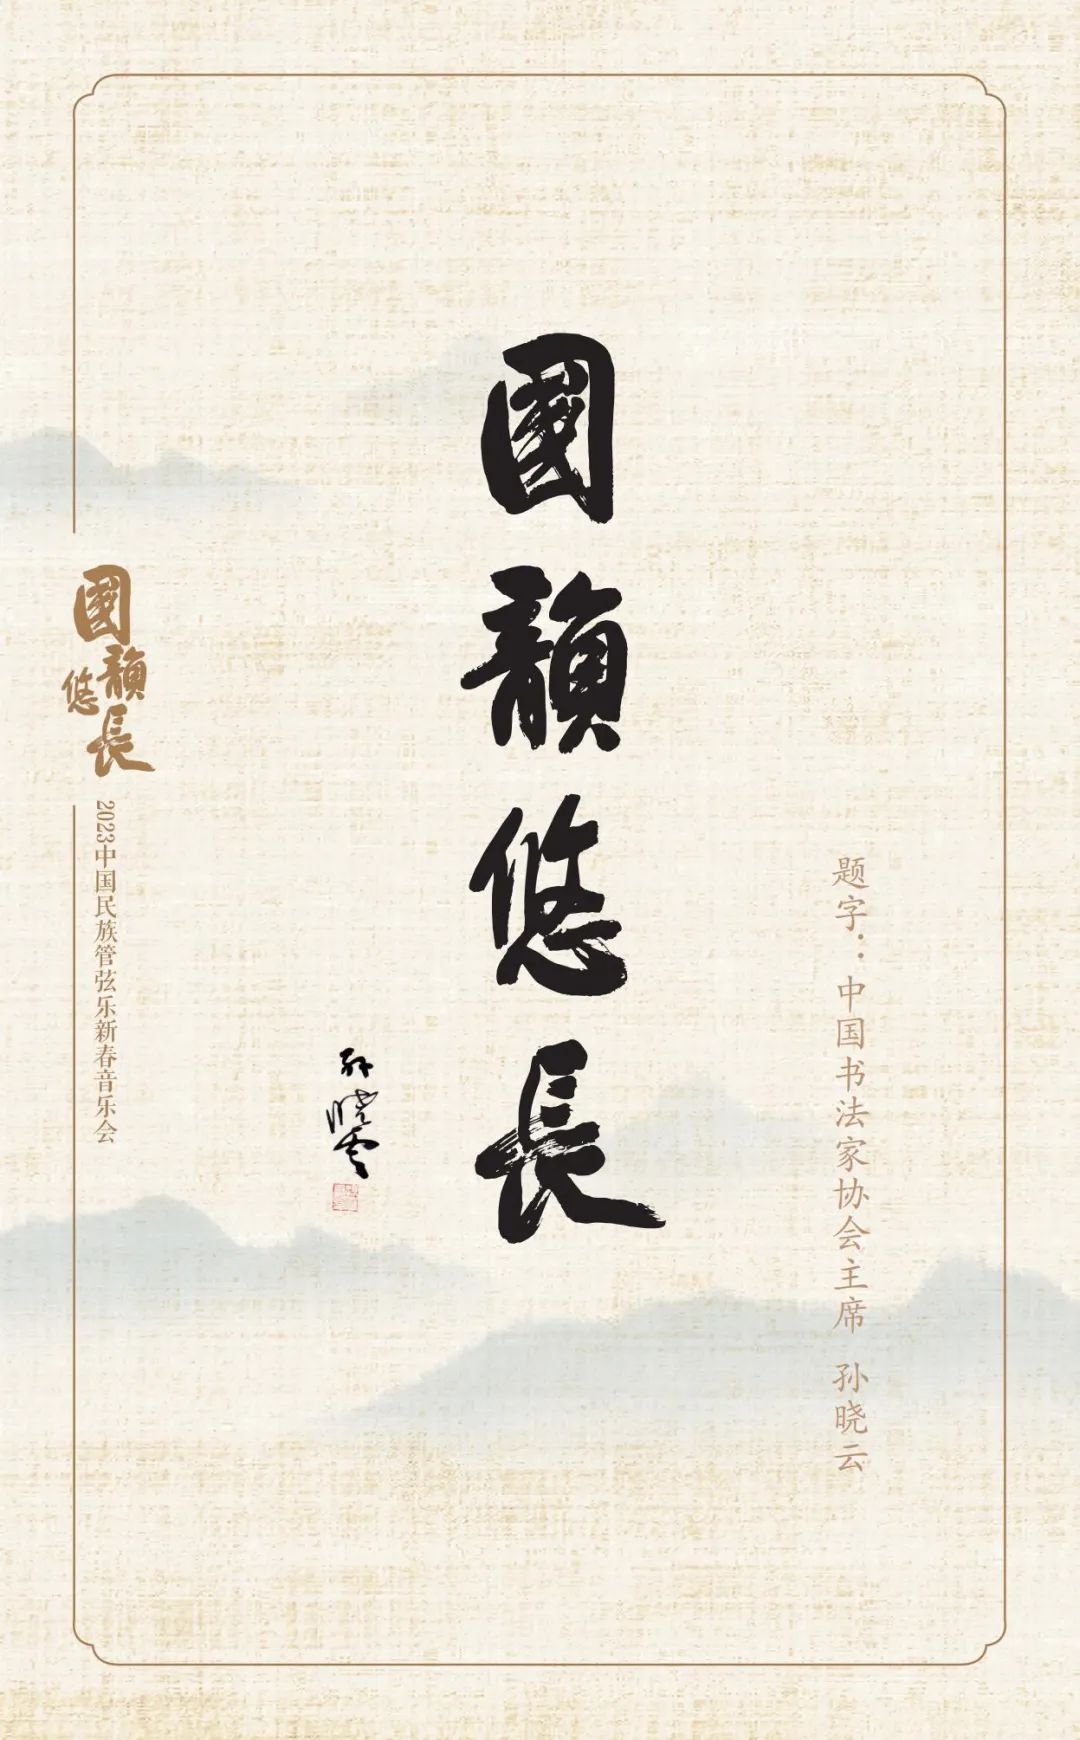 國韻悠長
题字：中国书法家协会主席 孙晓云
孙晓云
國韻悠長
2023中国民族管弦乐新春音乐会